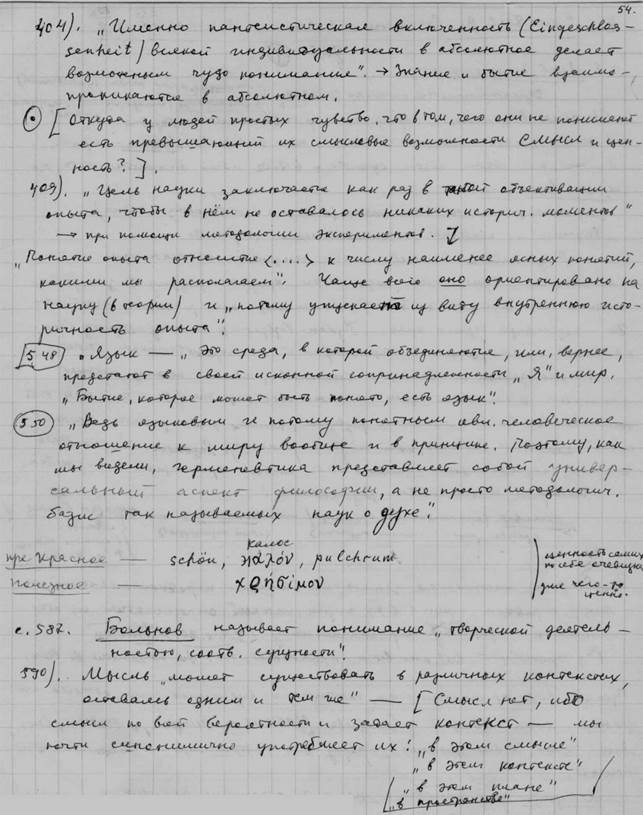 54.
404). "Именно пантеистическая включенность (Eingeschlos-
senheit) всякой индивидуальности в абсолютное делает
возможным чудо понимания". → Знание и бытие взаимо-
проникаются в абсолютном.
[Откуда у людей простых чувство, что в том, чего они не понимают
есть превышающий их смысловые возможности Смысл и цен-
ность?].
409). "Цель науки заключается как раз в такой объективации
опыта, чтобы в нём не оставалось никаких историч. моментов"
→ при помощи методологии экспериментов.
"Понятие опыта относится <....> к числу наименее ясных понятий,
какими мы располагаем". Чаще всего оно ориентировано на
науку (в теории) и "потому упускает из виду внутреннюю исто-
ричность опыта".
548 Язык — "это среда, в которой объединяются, или, вернее,
предстают в своей исконной сопринадлежности "Я" и мир.
"Бытие, которое может быть понято, есть язык".
550 "Ведь языковым и потому понятным явл. человеческое
отношение к миру вообще и в принципе. Поэтому, как
мы видели, герменевтика представляет собой универ-
сальный аспект философии, а не просто методологич.
базис так называемых наук о духе".
калос
прекрасное — schön, καλόν, pulchrum
ценность самих по себе очевидна
полезное — χρήσιμον
для чего-то ценны.
с. 587. Больнов называет понимание "творческой деятель-
ностью, соотв. сущности".
590). Мысль "может существовать в различных контекстах,
оставаясь одним и тем же" — [Смысл нет, ибо
смысл по всей вероятности и задает контекст — мы
почти синонимично употребляем их! "в этом смысле"
"в этом контексте"
"в этом плане"
"в пространстве"